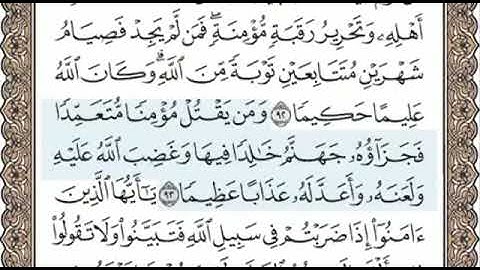 أَهْلِهِۦ وَتَحْرِيرُ رَقَبَةٍ مُّؤْمِنَةٍ ۖ فَمَن لَّمْ يَجِدْ فَصِيَامُ
شَهْرَيْنِ مُتَتَابِعَيْنِ تَوْبَةً مِّنَ ٱللَّهِ ۗ وَكَانَ ٱللَّهُ
عَلِيمًا حَكِيمًا ﴿٩٢﴾ وَمَن يَقْتُلْ مُؤْمِنًا مُّتَعَمِّدًا
فَجَزَآؤُهُۥ جَهَنَّمُ خَٰلِدًا فِيهَا وَغَضِبَ ٱللَّهُ عَلَيْهِ
وَلَعَنَهُۥ وَأَعَدَّ لَهُۥ عَذَابًا عَظِيمًا ﴿٩٣﴾ يَٰٓأَيُّهَا ٱلَّذِينَ
ءَامَنُوٓا۟ إِذَا ضَرَبْتُمْ فِى سَبِيلِ ٱللَّهِ فَتَبَيَّنُوا۟ وَلَا تَقُولُوا۟